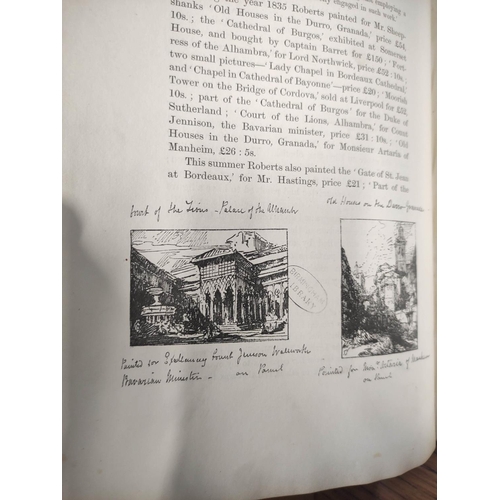 employing a
engaged in such work.
the year 1835 Roberts painted for Mr. Sheep-
shanks 'Old Houses in the Durro, Granada,' price £54,
10s.; the 'Cathedral of Burgos,' exhibited at Somerset
House, and bought by Captain Barret for £150; 'Fort-
ress of the Alhambra,' for Lord Northwick, price £52 : 10s.;
two small pictures—'Lady Chapel in Bordeaux Cathedral,'
and 'Chapel in Cathedral of Bayonne'—price £20; 'Moorish
Tower on the Bridge of Cordova,' sold at Liverpool for £52,
10s.; part of the 'Cathedral of Burgos' for the Duke of
Sutherland; 'Court of the Lions, Alhambra,' for Count
Jennison, the Bavarian minister, price £31 : 10s.; 'Old
Houses in the Durro, Granada,' for Monsieur Artaria of
Manheim, £26 : 5s.
This summer Roberts also painted the 'Gate of St. Jean
at Bordeaux,' for Mr. Hastings, price £21; 'Part of the
Court of the Lions - Palace of the
Old Houses on the Darro
LIBRARY
Painted for Excellency Count Jenison Wallworth
Bavarian Minister - on Panel
Painted for Mon' Artaria of
on Panel